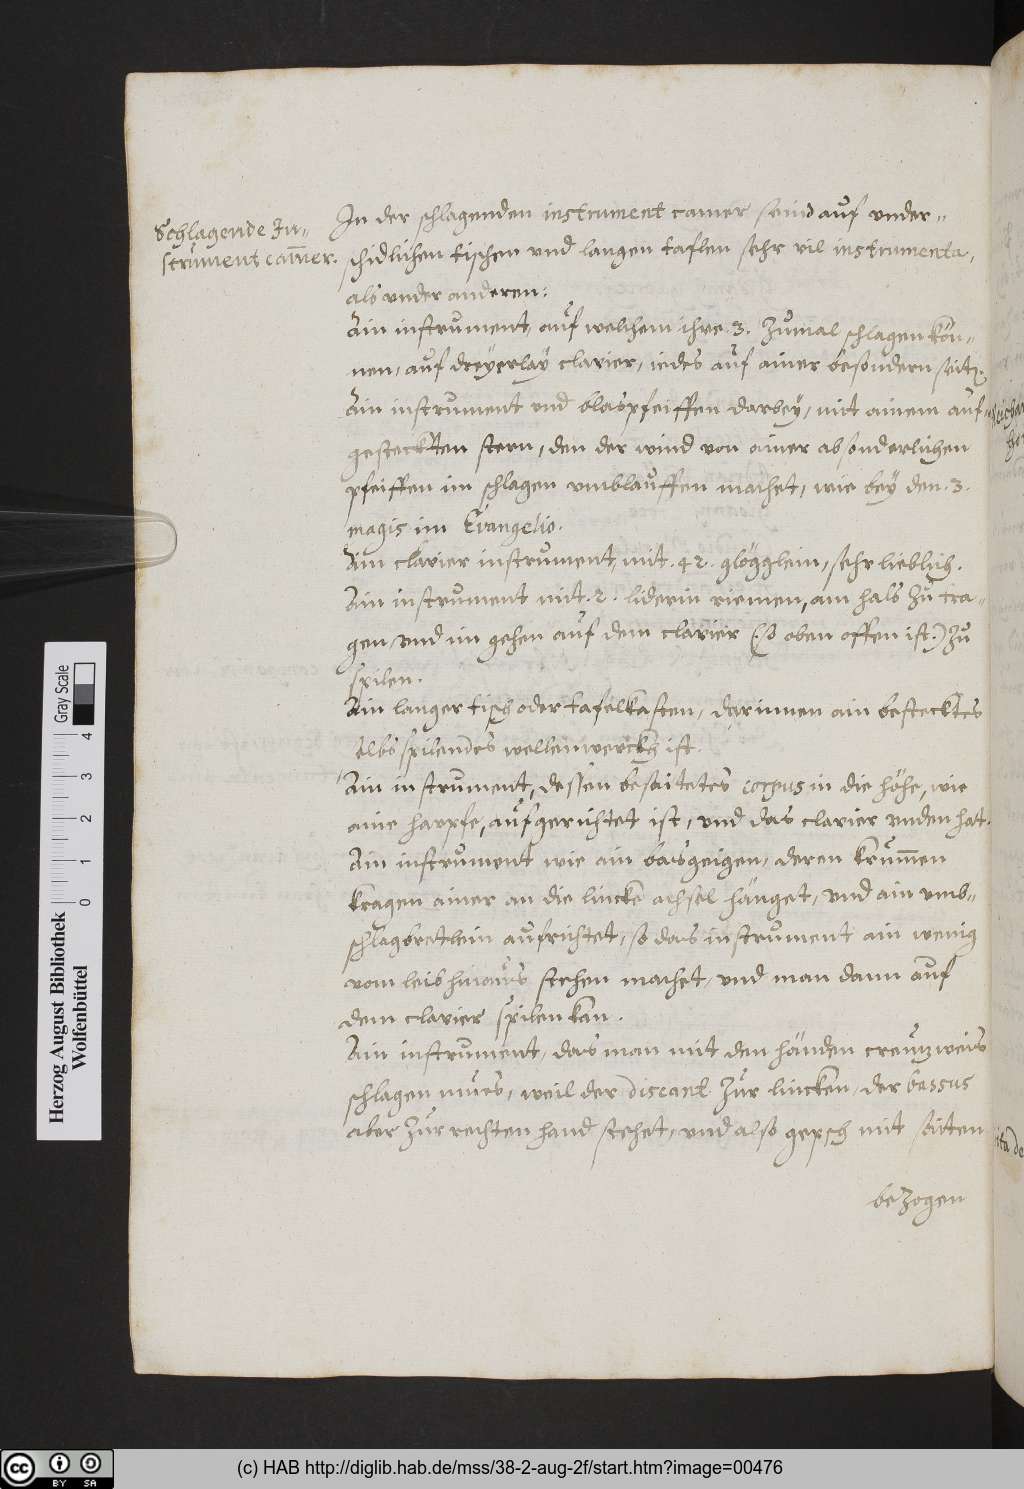 Schlagende In-
strument camer.
In der schlagenden instrument camer seind auf under-
schidlichen tischen und langen taflen sehr vil instrumenta,
als under anderen:
Ain instrument, auf welchem ihre 3. zumal schlagen kön-
nen, auf dreyerlay clavier, iedes auf ainer besondern seit.
Ain instrument und blaspfeiffen darbey, mit ainem auf-
gesteckten stern, den der wind von ainer absonderlichen
pfeiffen im schlagen umblauffen machet, wie bey den .3.
magis im Evangelio.
Ain clavier instrument, mit .42. glögglein, sehr lieblich.
Ain instrument mit .2. liderin riemen, am hals zu tra-
gen, und im gehen auf dem clavier (so oben offen ist.) zu
spilen.
Ain langer tisch oder tafelkasten, darinnen ain bestecktes
selbs spilendes wellenwerckh ist.
Ain instrument, dessen besaitetes corpus in die höhe, wie
aine harpfe, aufgerichtet ist, und das clavier unden hat.
Ain instrument wie ain basgeigen, deren krummen
kragen ainer an die lincke achsel hänget, und ain umb-
schlagbretlein aufrichtet, so das instrument ain wenig
vom leib hinaus stehen machet, und man dann auf
dem clavier spilen kan.
Ain instrument, das man mit den händen creutzweis
schlagen mues, weil der discant zur lincken, der bassus
aber zur rechten hand stehet, und also gepsch mit saiten
bezogen
Herzog August Bibliothek
Wolfenbüttel
0 1 2 3 4
Gray Scale
cc BY SA
(c) HAB http://diglib.hab.de/mss/38-2-aug-2f/start.htm?image=00476